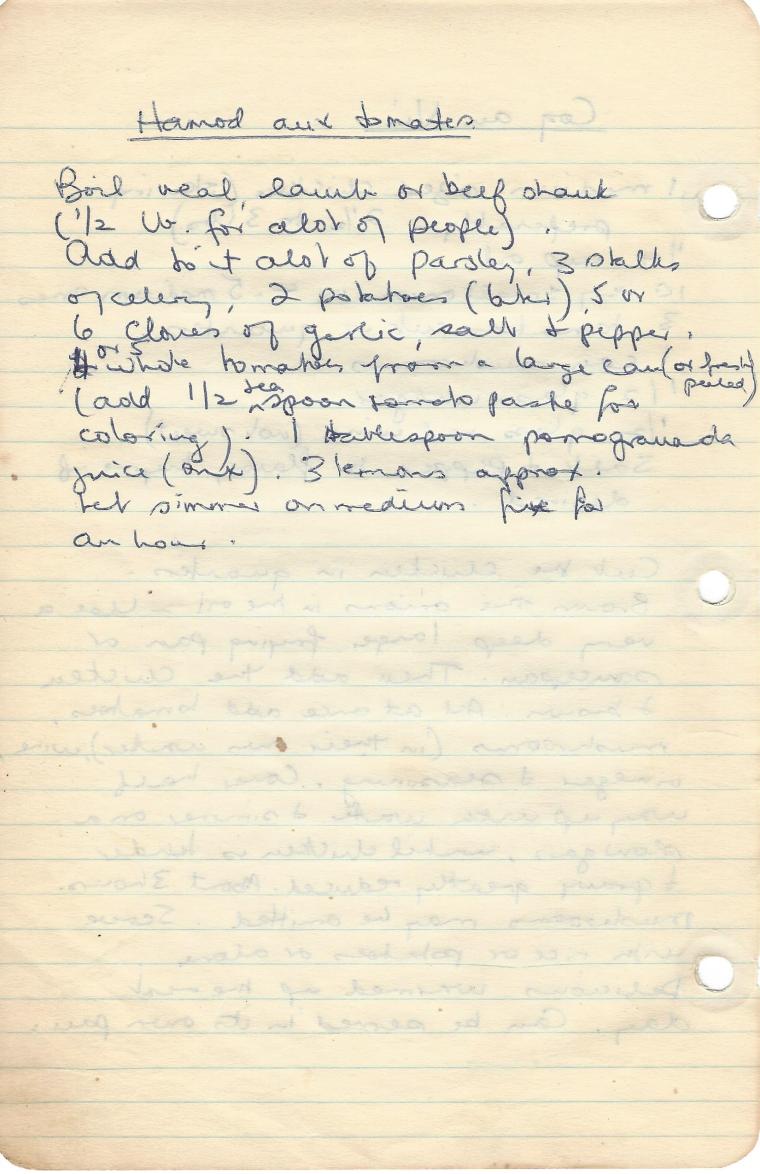 Hamod aux tomates
Boil veal, lamb or beef shank
(1/2 lb. for alot of people).
Add to it alot of parsley, 3 stalks
of celery, 2 potatoes (later), 5 or
6 cloves of garlic, salt & pepper.
4 or 5 whole tomatoes from a large can (or fresh peeled)
(add 1/2 teaspoon tomato paste for
coloring). 1 tablespoon pomogranada
juice (onx). 3 lemons approx.
Let simmer on medium fire for
an hour.